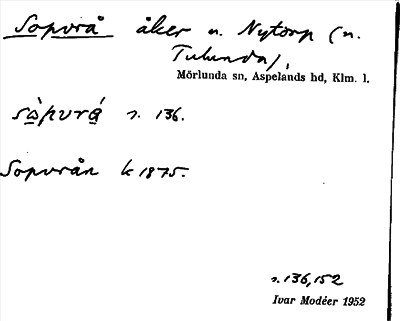 Sopvrå åker u. Nytorp (u.
Tulunda),
Mörlunda sn, Aspelands hd, Klm. l.
sòpvrá s. 136.
Sopvrån k 1875.
s. 136, 152
Ivar Modéer 1952